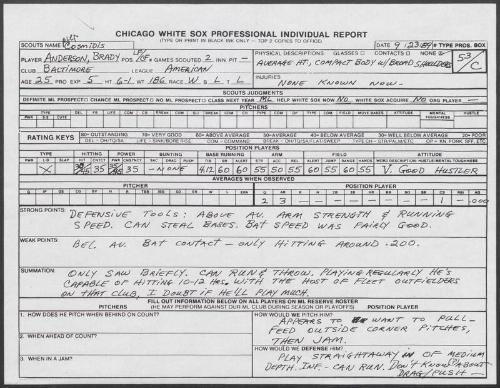 CHICAGO WHITE SOX PROFESSIONAL INDIVIDUAL REPORT
(TYPE OR PRINT IN BLACK INK ONLY - TOP 2 COPIES TO OFFICE)
SCOUTS NAME Alex Cosmidis DATE 9/23/89 TYPE PROS. BOX
PLAYER ANDERSON, BRADY # GAMES SCOUTED 2 INN. PIT -
CLUB BALTIMORE LEAGUE AMERICAN
AGE 25 PRO EXP 5 HT 6-1 WT 186 RACE W B L T L
PHYSICAL DESCRIPTIONS: GLASSES CONTACTS NONE
AVERAGE HT, COMPACT BODY W/BROAD SHOULDERS
INJURIES: NONE KNOWN NOW.
53/C
SCOUTS JUDGMENTS
DEFINITE ML PROSPECT CHANCE ML PROSPECT NO ML PROSPECT CLASS NEXT YEAR ML HELP WHITE SOX NOW NO WHITE SOX ACQUIRE NO ORG PLAYER -
PITCHERS
RATING KEYS
80-OUTSTANDING 70-VERY GOOD 60-ABOVE AVERAGE 50-AVERAGE 40-BELOW AVERAGE 30-WELL BELOW AVERAGE 20-POOR
POSITION PLAYERS
TYPE HITTING POWER BUNTING BASE RUNNING ARM FIELDING ATTITUDE
X 35 35 - NONE 4.12 60 60 55 50 55 60 60 55 55 V. GOOD HUSTLER
AVERAGES WHEN OBSERVED
PITCHER POSITION PLAYER
2 3 - - - - - - 1 - .000
STRONG POINTS: DEFENSIVE TOOLS: ABOVE AV. ARM STRENGTH & RUNNING
SPEED. CAN STEAL BASES. BAT SPEED WAS FAIRLY GOOD.
WEAK POINTS: BEL. AV. BAT CONTACT - ONLY HITTING AROUND .200.
SUMMATION: ONLY SAW BRIEFLY. CAN RUN & THROW. PLAYING REGULARLY HE'S
CAPABLE OF HITTING 10-12 HRS. WITH THE HOST OF FLEET OUTFIELDERS
ON THAT CLUB, I DOUBT IF HE'LL PLAY MUCH.
FILL OUT INFORMATION BELOW ON ALL PLAYERS ON ML RESERVE ROSTER
PITCHERS (HE MAY PERFORM AGAINST OUR ML CLUB DURING SEASON OR PLAYOFFS) POSITION PLAYER
1. HOW DOES HE PITCH WHEN BEHIND ON COUNT?
2. WHEN AHEAD OF COUNT?
3. WHEN IN A JAM?
HOW WOULD WE PITCH HIM?
APPEARS TO WANT TO PULL -
FEED OUTSIDE CORNER PITCHES,
THEN JAM.
HOW WOULD WE DEFENSE HIM?
PLAY STRAIGHTAWAY IN OF MEDIUM
DEPTH. INF - CAN RUN. DON'T KNOW ABOUT
DRAG/PUSH -